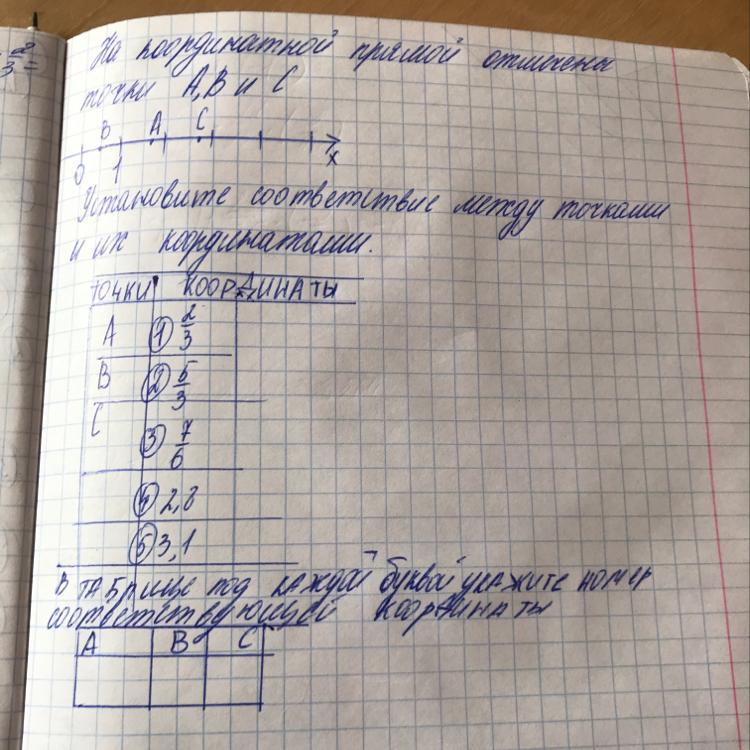 2/3 =
На координатной прямой отмечены
точки А, В и С
В А С
0 1 х
Установите соответствие между точками
и их координатами.
точки координаты
А ① 2/3
В ② 5/3
С
③ 7/6
④ 2,8
⑤ 3,1
В таблице под каждой буквой укажите номер
соответствующей координаты
А В С